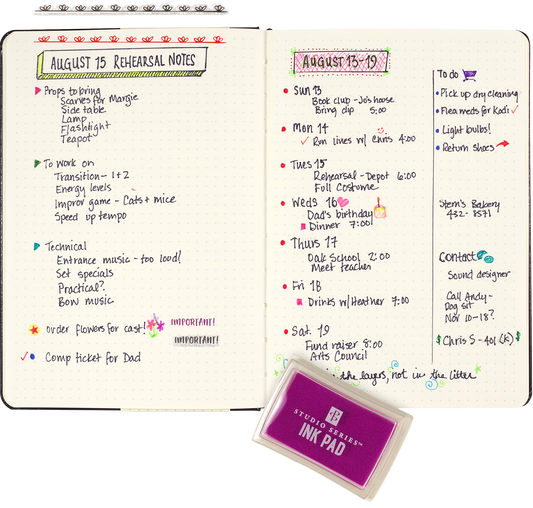 AUGUST 15 REHEARSAL NOTES
Props to bring
Scarves for Margie
Side table
Lamp
Flashlight
Teapot
To work on
Transition - 1+2
Energy levels
Improv game - Cats + mice
Speed up tempo
Technical
Entrance music - too loud!
Set specials
Practical?
Bow music
order flowers for cast!
IMPORTANT!
IMPORTANT!
Comp ticket for Dad
AUGUST 13-19
Sun 13
Book club - Jo's house
Bring dip 5:00
Mon 14
Run lines w/ Chris 4:00
Tues 15
Rehearsal - Depot 6:00
Full Costume
Weds 16
Dad's birthday
Dinner 7:00
Thurs 17
Oak School 2:00
Meet teacher
Fri 18
Drinks w/Heather 7:00
Sat. 19
Fund raiser 8:00
Arts Council
the layers, not in the litter
To do
Pick up dry cleaning
Flea meds for Kodi
Light bulbs!
Return shoes
Stern's Bakery
432-8571
Contact
Sound designer
Call Andy -
Dog sit
Nov 10-18?
$ Chris S - 401 (K) $
STUDIO SERIES™
INK PAD